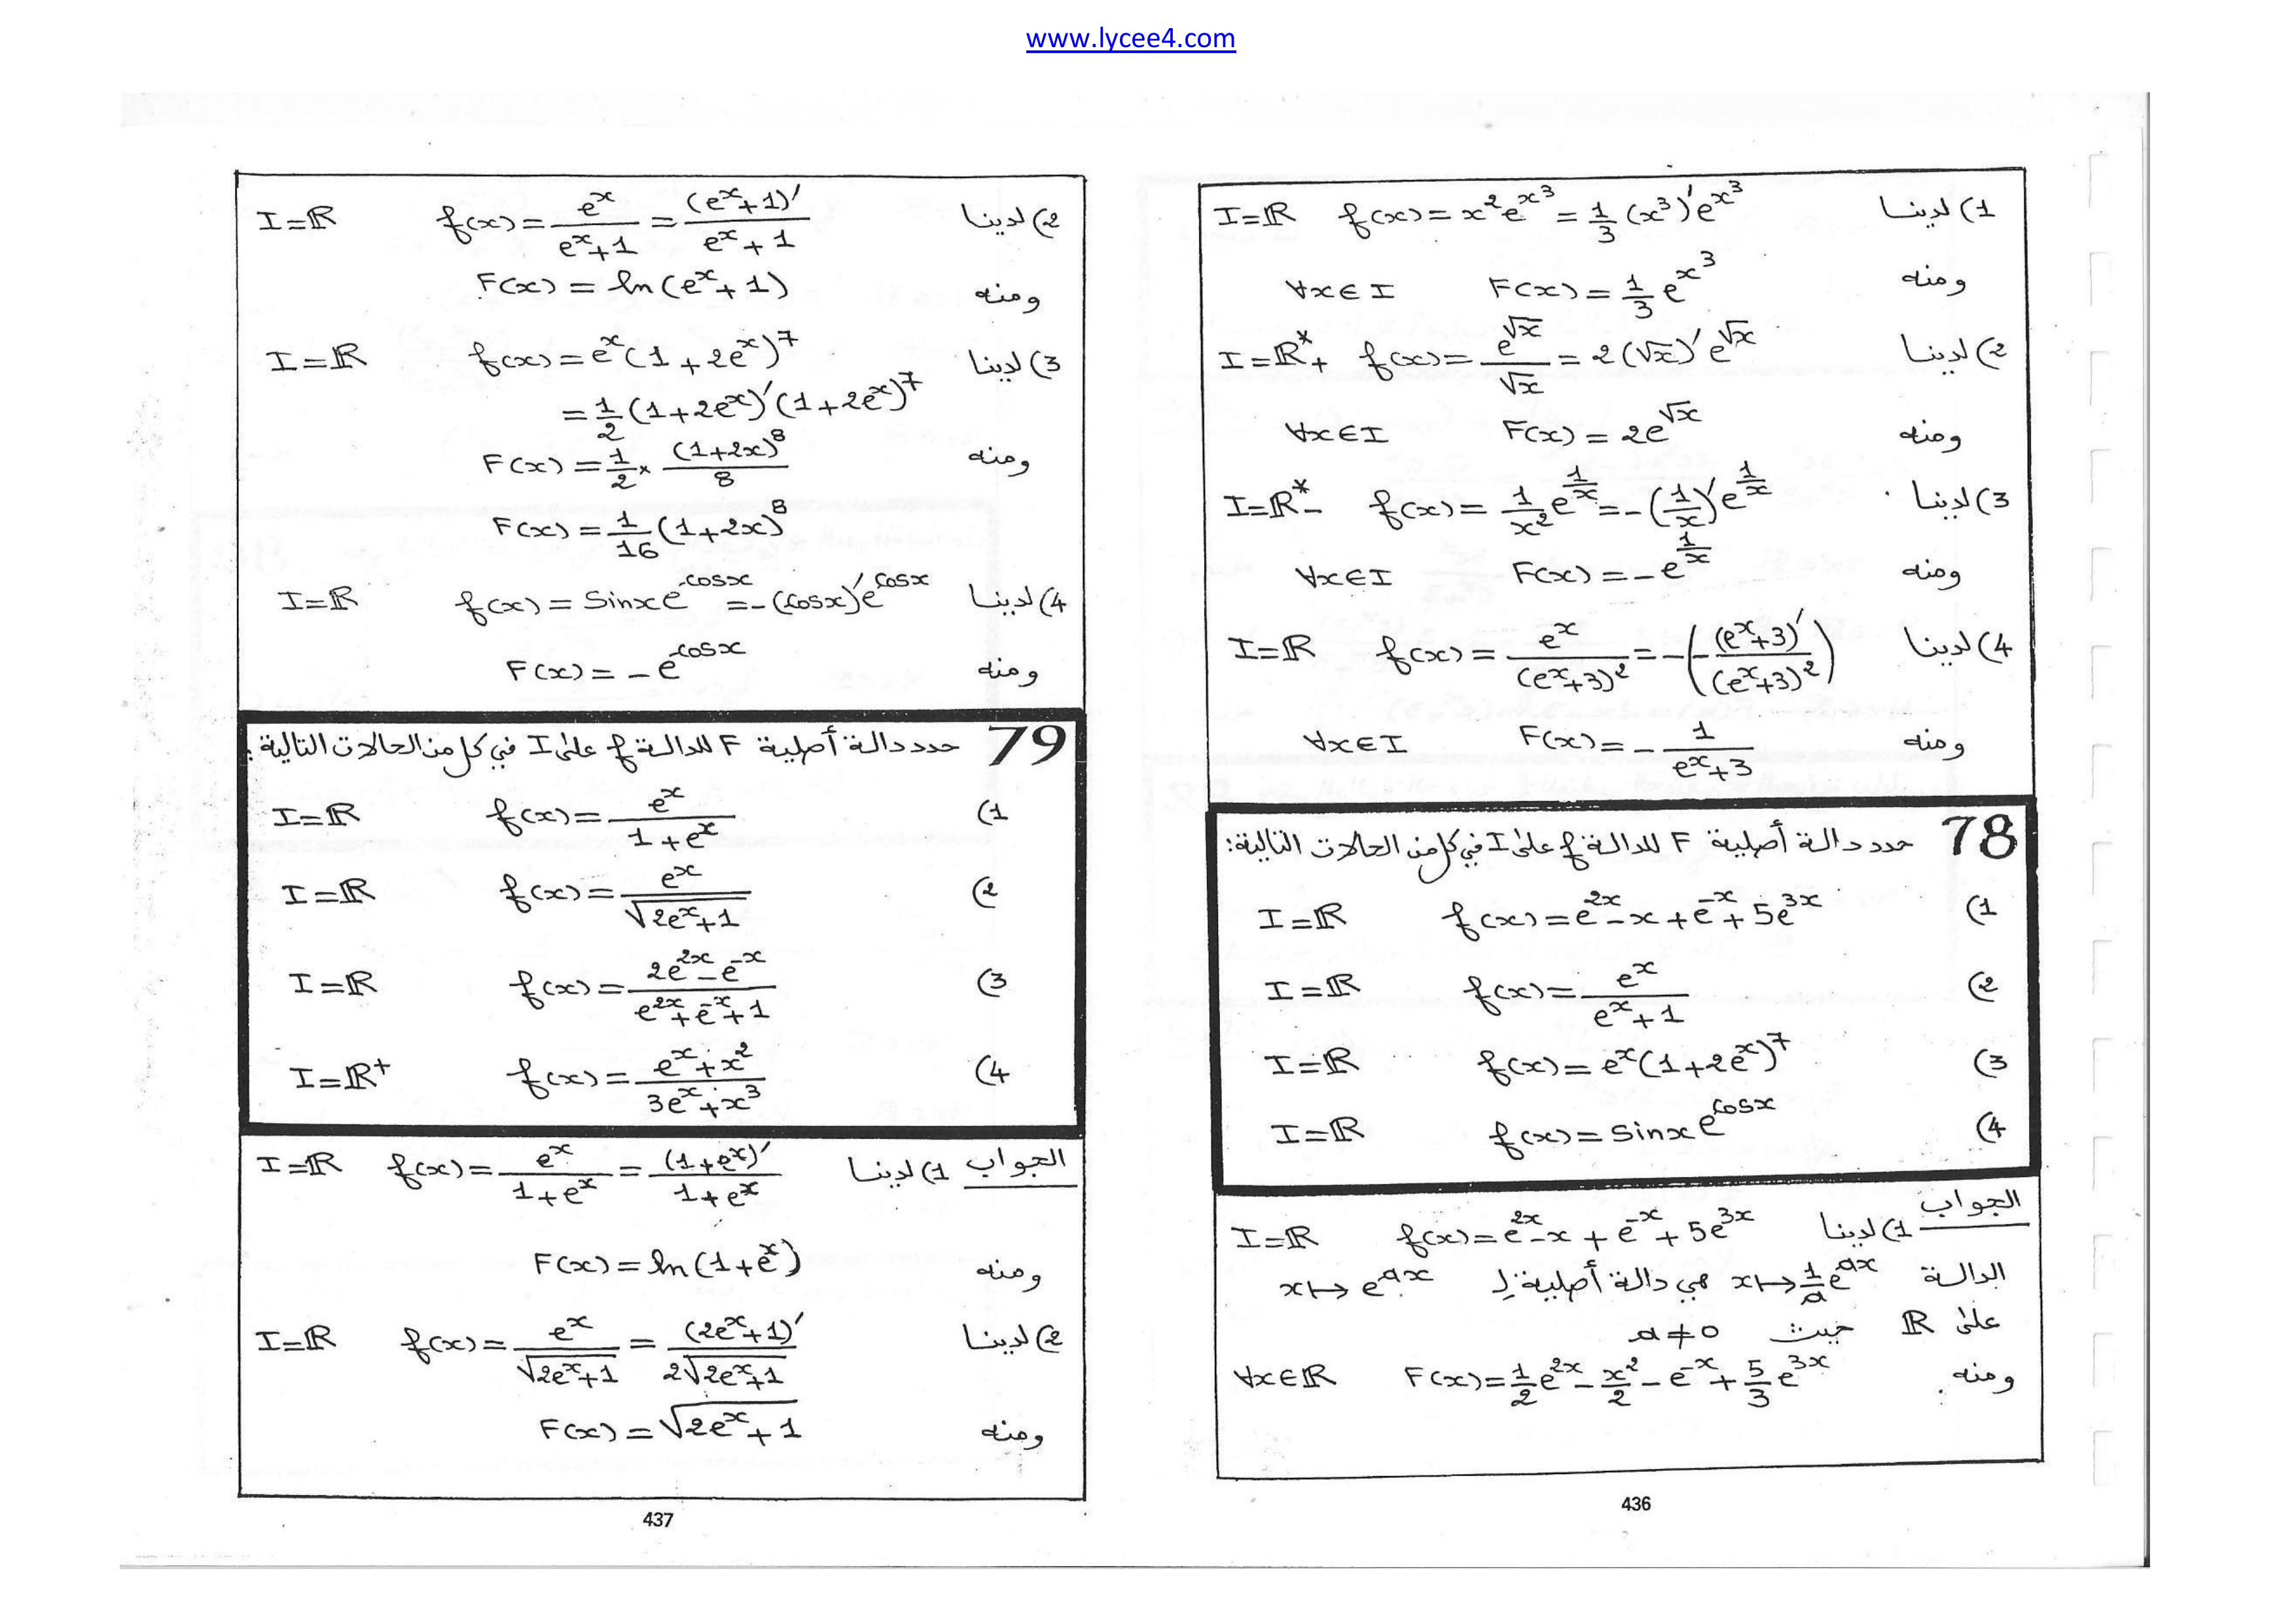 www.lycee4.com
1) لدينا f(x) = x²e^{x³} = 1/3 (x³)' e^{x³} I=ℝ
ومنه F(x) = 1/3 e^{x³} ∀x∈I
2) لدينا f(x) = e^{√x}/√x = 2(√x)' e^{√x} I=ℝ*+
ومنه F(x) = 2e^{√x} ∀x∈I
3) لدينا f(x) = 1/x² e^{1/x} = -(1/x)' e^{1/x} I=ℝ*-
ومنه F(x) = -e^{1/x} ∀x∈I
4) لدينا f(x) = e^x/(e^x+3)² = -(-(e^x+3)'/(e^x+3)²) I=ℝ
ومنه F(x) = -1/(e^x+3) ∀x∈I
78 حدد دالة أصلية F للدالة f على I في كل من الحالات التالية:
1) f(x) = e^{2x} - x + e^{-x} + 5e^{3x} I=ℝ
2) f(x) = e^x/(e^x+1) I=ℝ
3) f(x) = e^x(1+2e^x)^7 I=ℝ
4) f(x) = sinx e^{cosx} I=ℝ
الجواب
1) لدينا f(x) = e^{2x} - x + e^{-x} + 5e^{3x} I=ℝ
الدالة x↦1/a e^{ax} هي دالة أصلية لـ x↦e^{ax}
على ℝ حيث a≠0
ومنه F(x) = 1/2 e^{2x} - x²/2 - e^{-x} + 5/3 e^{3x} ∀x∈ℝ
436
2) لدينا f(x) = e^x/(e^x+1) = (e^x+1)'/(e^x+1) I=ℝ
ومنه F(x) = ln(e^x+1)
3) لدينا f(x) = e^x(1+2e^x)^7 I=ℝ
= 1/2 (1+2e^x)'(1+2e^x)^7
ومنه F(x) = 1/2 × (1+2x)^8/8
F(x) = 1/16 (1+2x)^8
4) لدينا f(x) = sinx e^{cosx} = -(cosx)' e^{cosx} I=ℝ
ومنه F(x) = -e^{cosx}
79 حدد دالة أصلية F للدالة f على I في كل من الحالات التالية:
1) f(x) = e^x/(1+e^x) I=ℝ
2) f(x) = e^x/√(2e^x+1) I=ℝ
3) f(x) = (2e^{2x}-e^{-x})/(e^{2x}+e^{-x}+1) I=ℝ
4) f(x) = (e^x+x²)/(3e^x+x³) I=ℝ+
الجواب 1) لدينا f(x) = e^x/(1+e^x) = (1+e^x)'/(1+e^x) I=ℝ
ومنه F(x) = ln(1+e^x)
2) لدينا f(x) = e^x/√(2e^x+1) = (2e^x+1)'/(2√(2e^x+1)) I=ℝ
ومنه F(x) = √(2e^x+1)
437